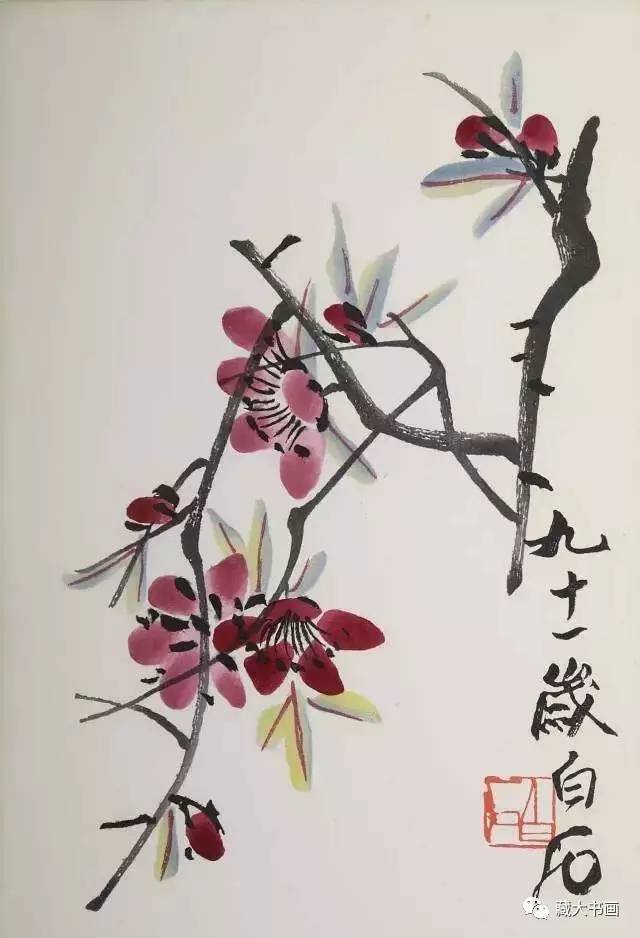 九十一歲白石
藏大书画